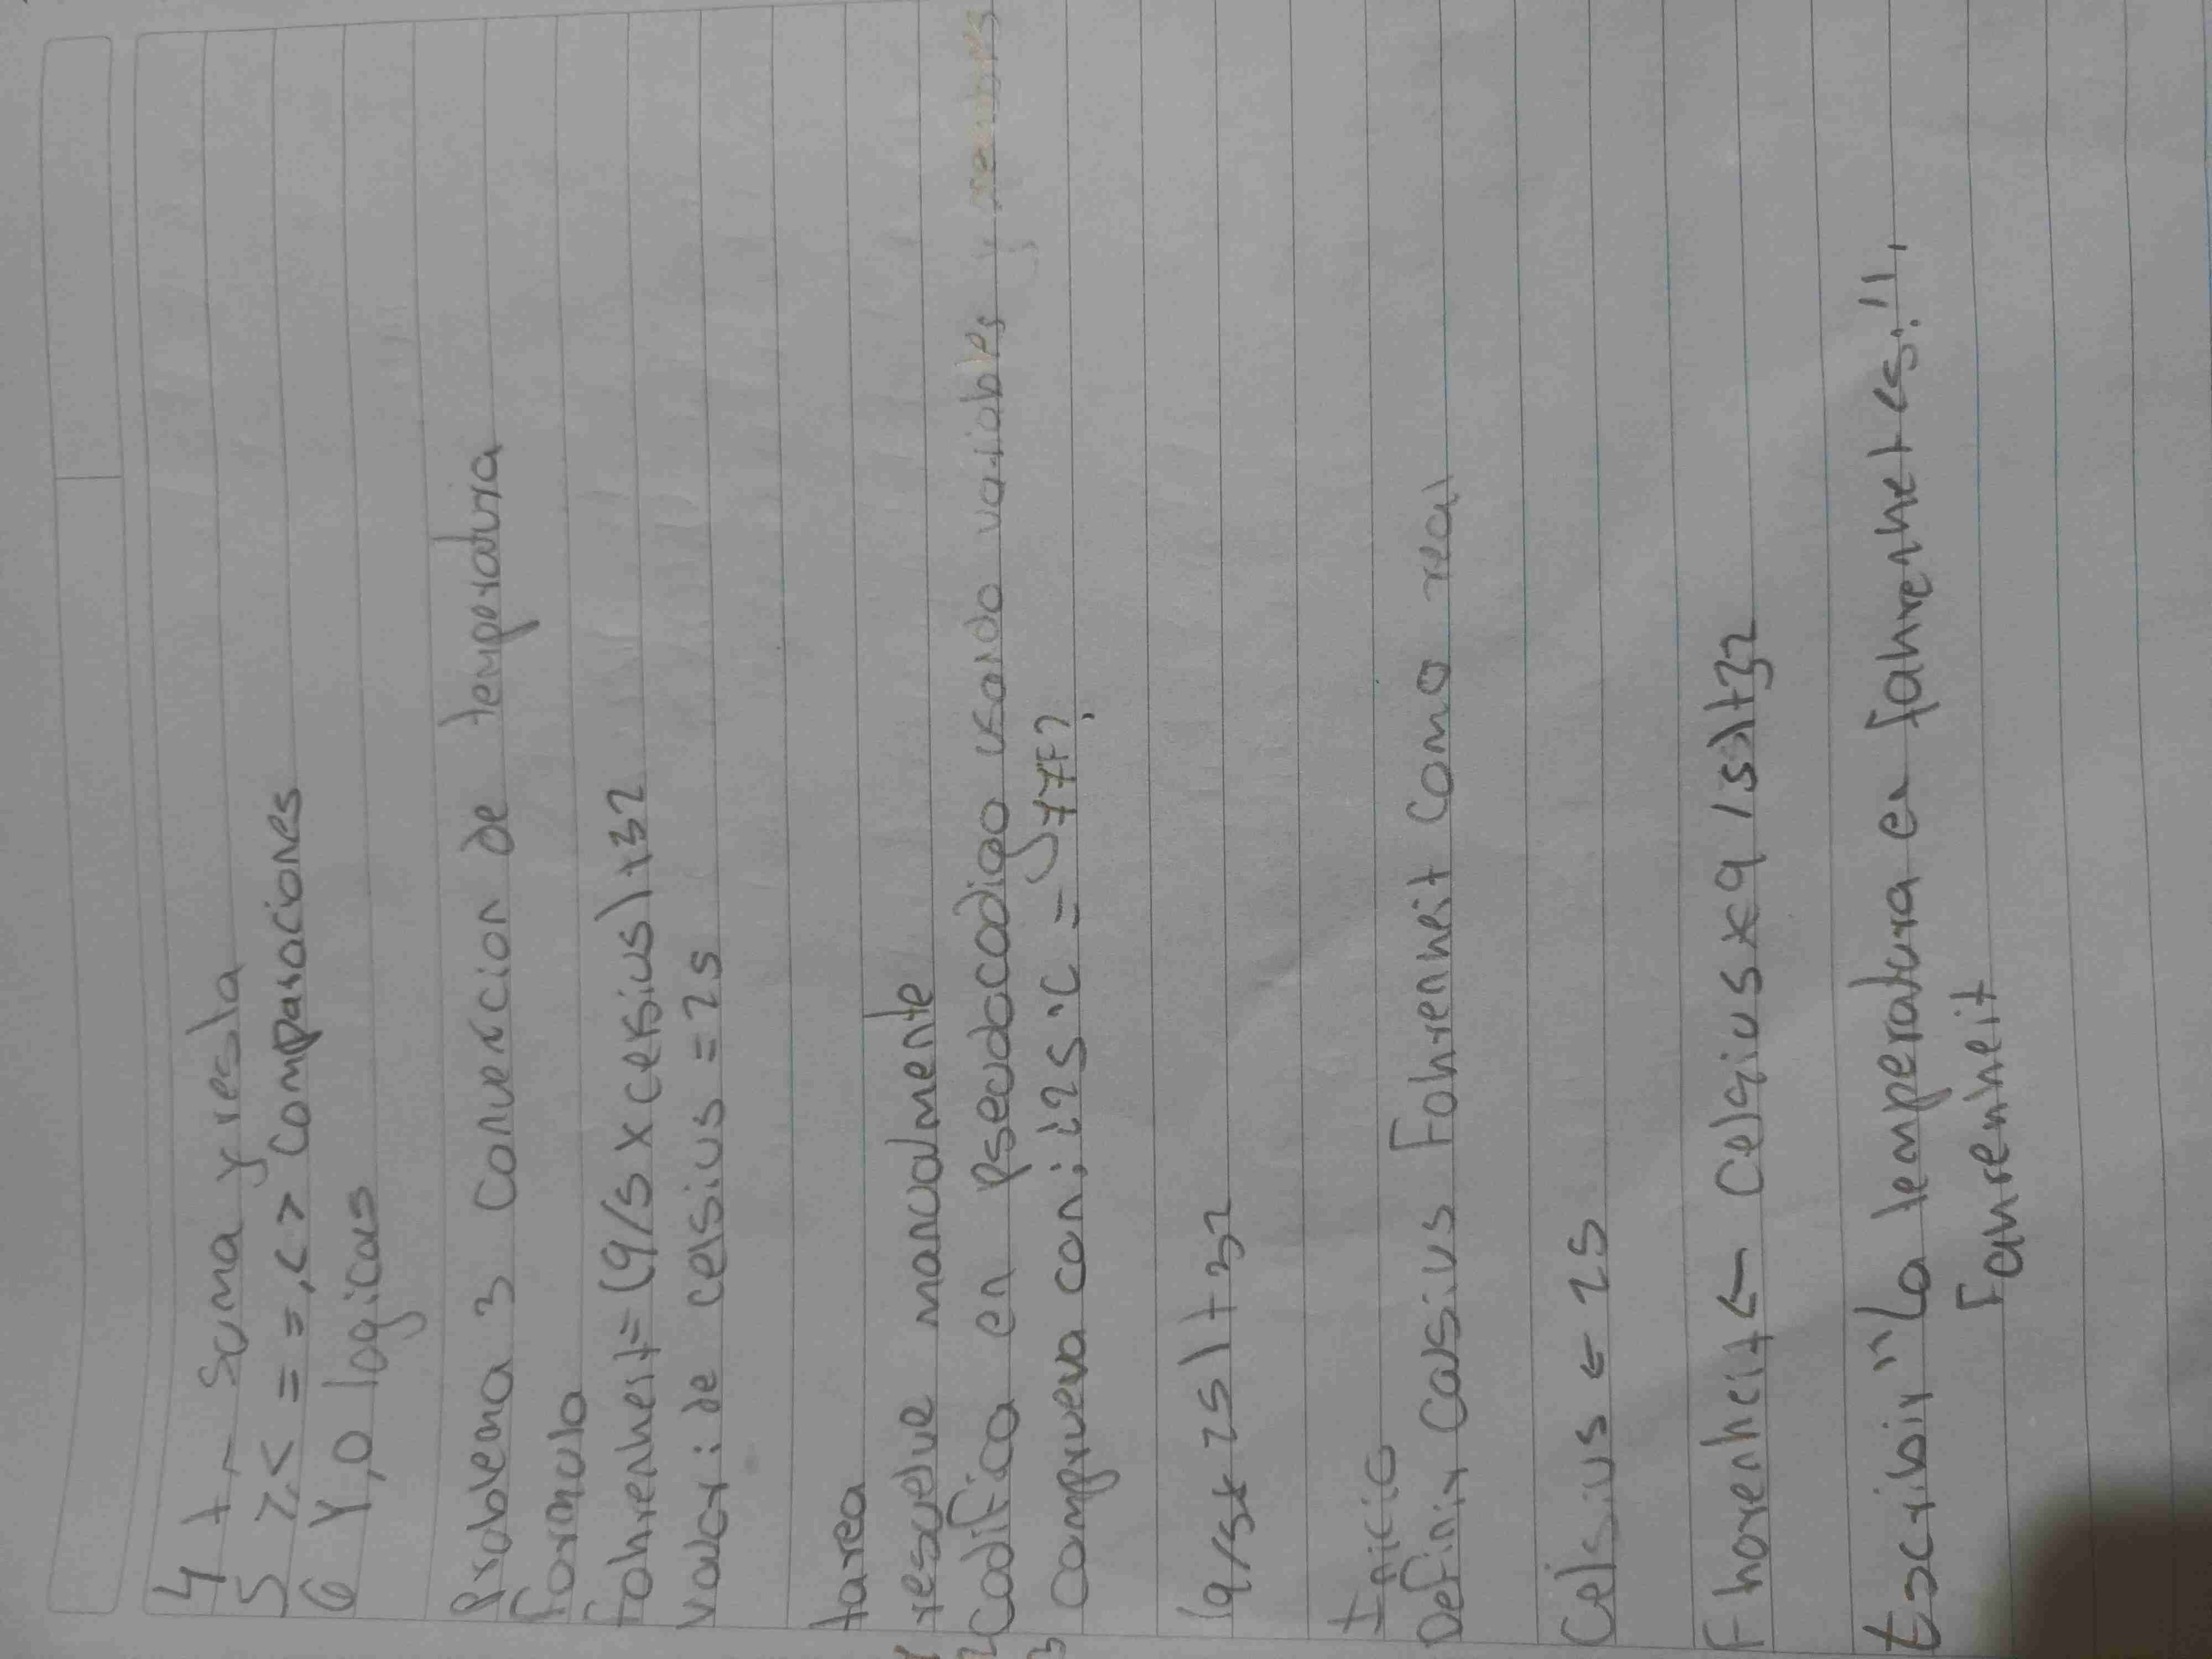 4 + - suma y resta
5 >, < = =, <> comparaciones
6 Y, O logicas
Problema 3 converción de temperatura
formula
Fahrenheit = (9/5 x celsius) + 32
valor: de celsius = 25
tarea
1 resuelve manualmente
2 codifica en pseudocodigo usando variables y
3 comprueva con: ¿25°C = 77F?
(9/5* 25) + 32
Inicio
Definir Celsius Fahrenheit Como real
Celsius ← 25
Fhorenheit ← Celsius * 9 /5) +32
Escribir "La temperatura en fahrenhet es:",
Fahrenheit